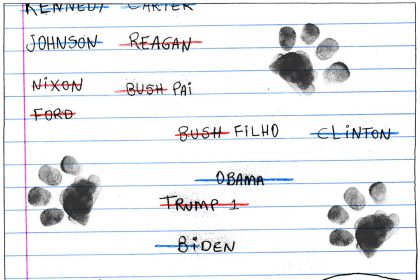 KENNEDY CARTER
JOHNSON REAGAN
NiXON BUSH PAi
FORD
BUSH FILHO CLiNTON
OBAMA
TRUMP 1
BiDEN